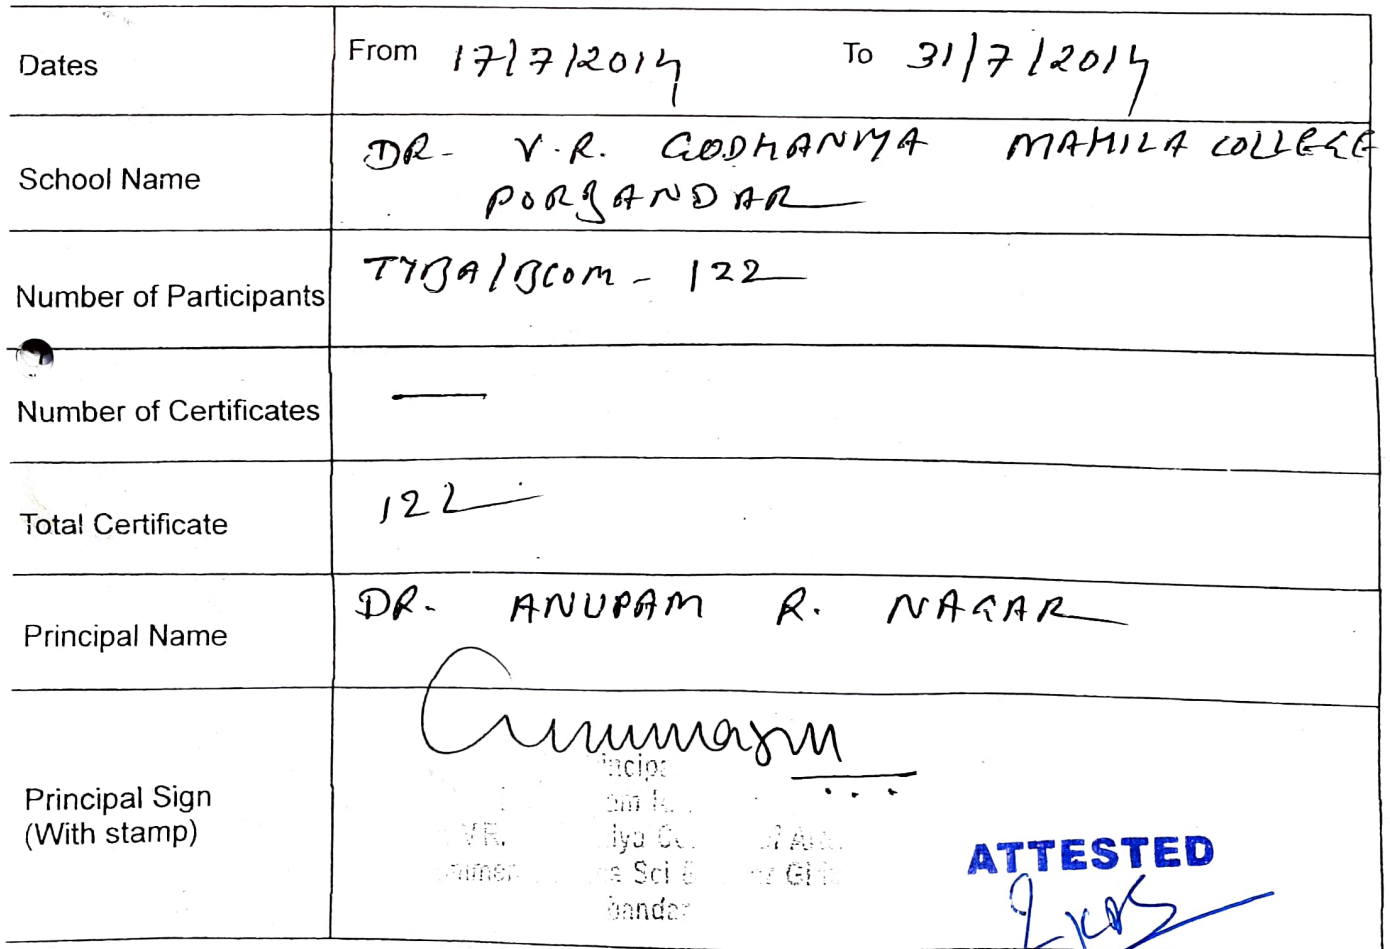 Dates From 17/7/2014 To 31/7/2014
School Name DR. V.R. GODHANIYA MAHILA COLLEGE
PORBANDAR
Number of Participants TYBA/BCOM - 122
Number of Certificates —
Total Certificate 122
Principal Name DR. ANUPAM R. NAGAR
Principal Sign
(With stamp)
ATTESTED